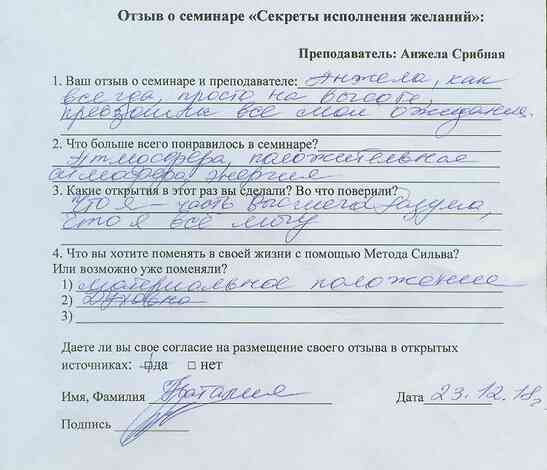 Отзыв о семинаре «Секреты исполнения желаний»:
Преподаватель: Анжела Срибная
1. Ваш отзыв о семинаре и преподавателе: Анжела, как
всегда, просто на высоте,
превзошла все мои ожидания.
2. Что больше всего понравилось в семинаре?
Атмосфера, положительное
атмосфера, энергия
3. Какие открытия в этот раз вы сделали? Во что поверили?
Что я – часть Высшего Разума,
что я всё могу
4. Что вы хотите поменять в своей жизни с помощью Метода Сильва?
Или возможно уже поменяли?
1) Материальное положение
2) Духовно
3)
Даете ли вы свое согласие на размещение своего отзыва в открытых
источниках: да нет
Имя, Фамилия Наталия Дата 23.12.18г
Подпись